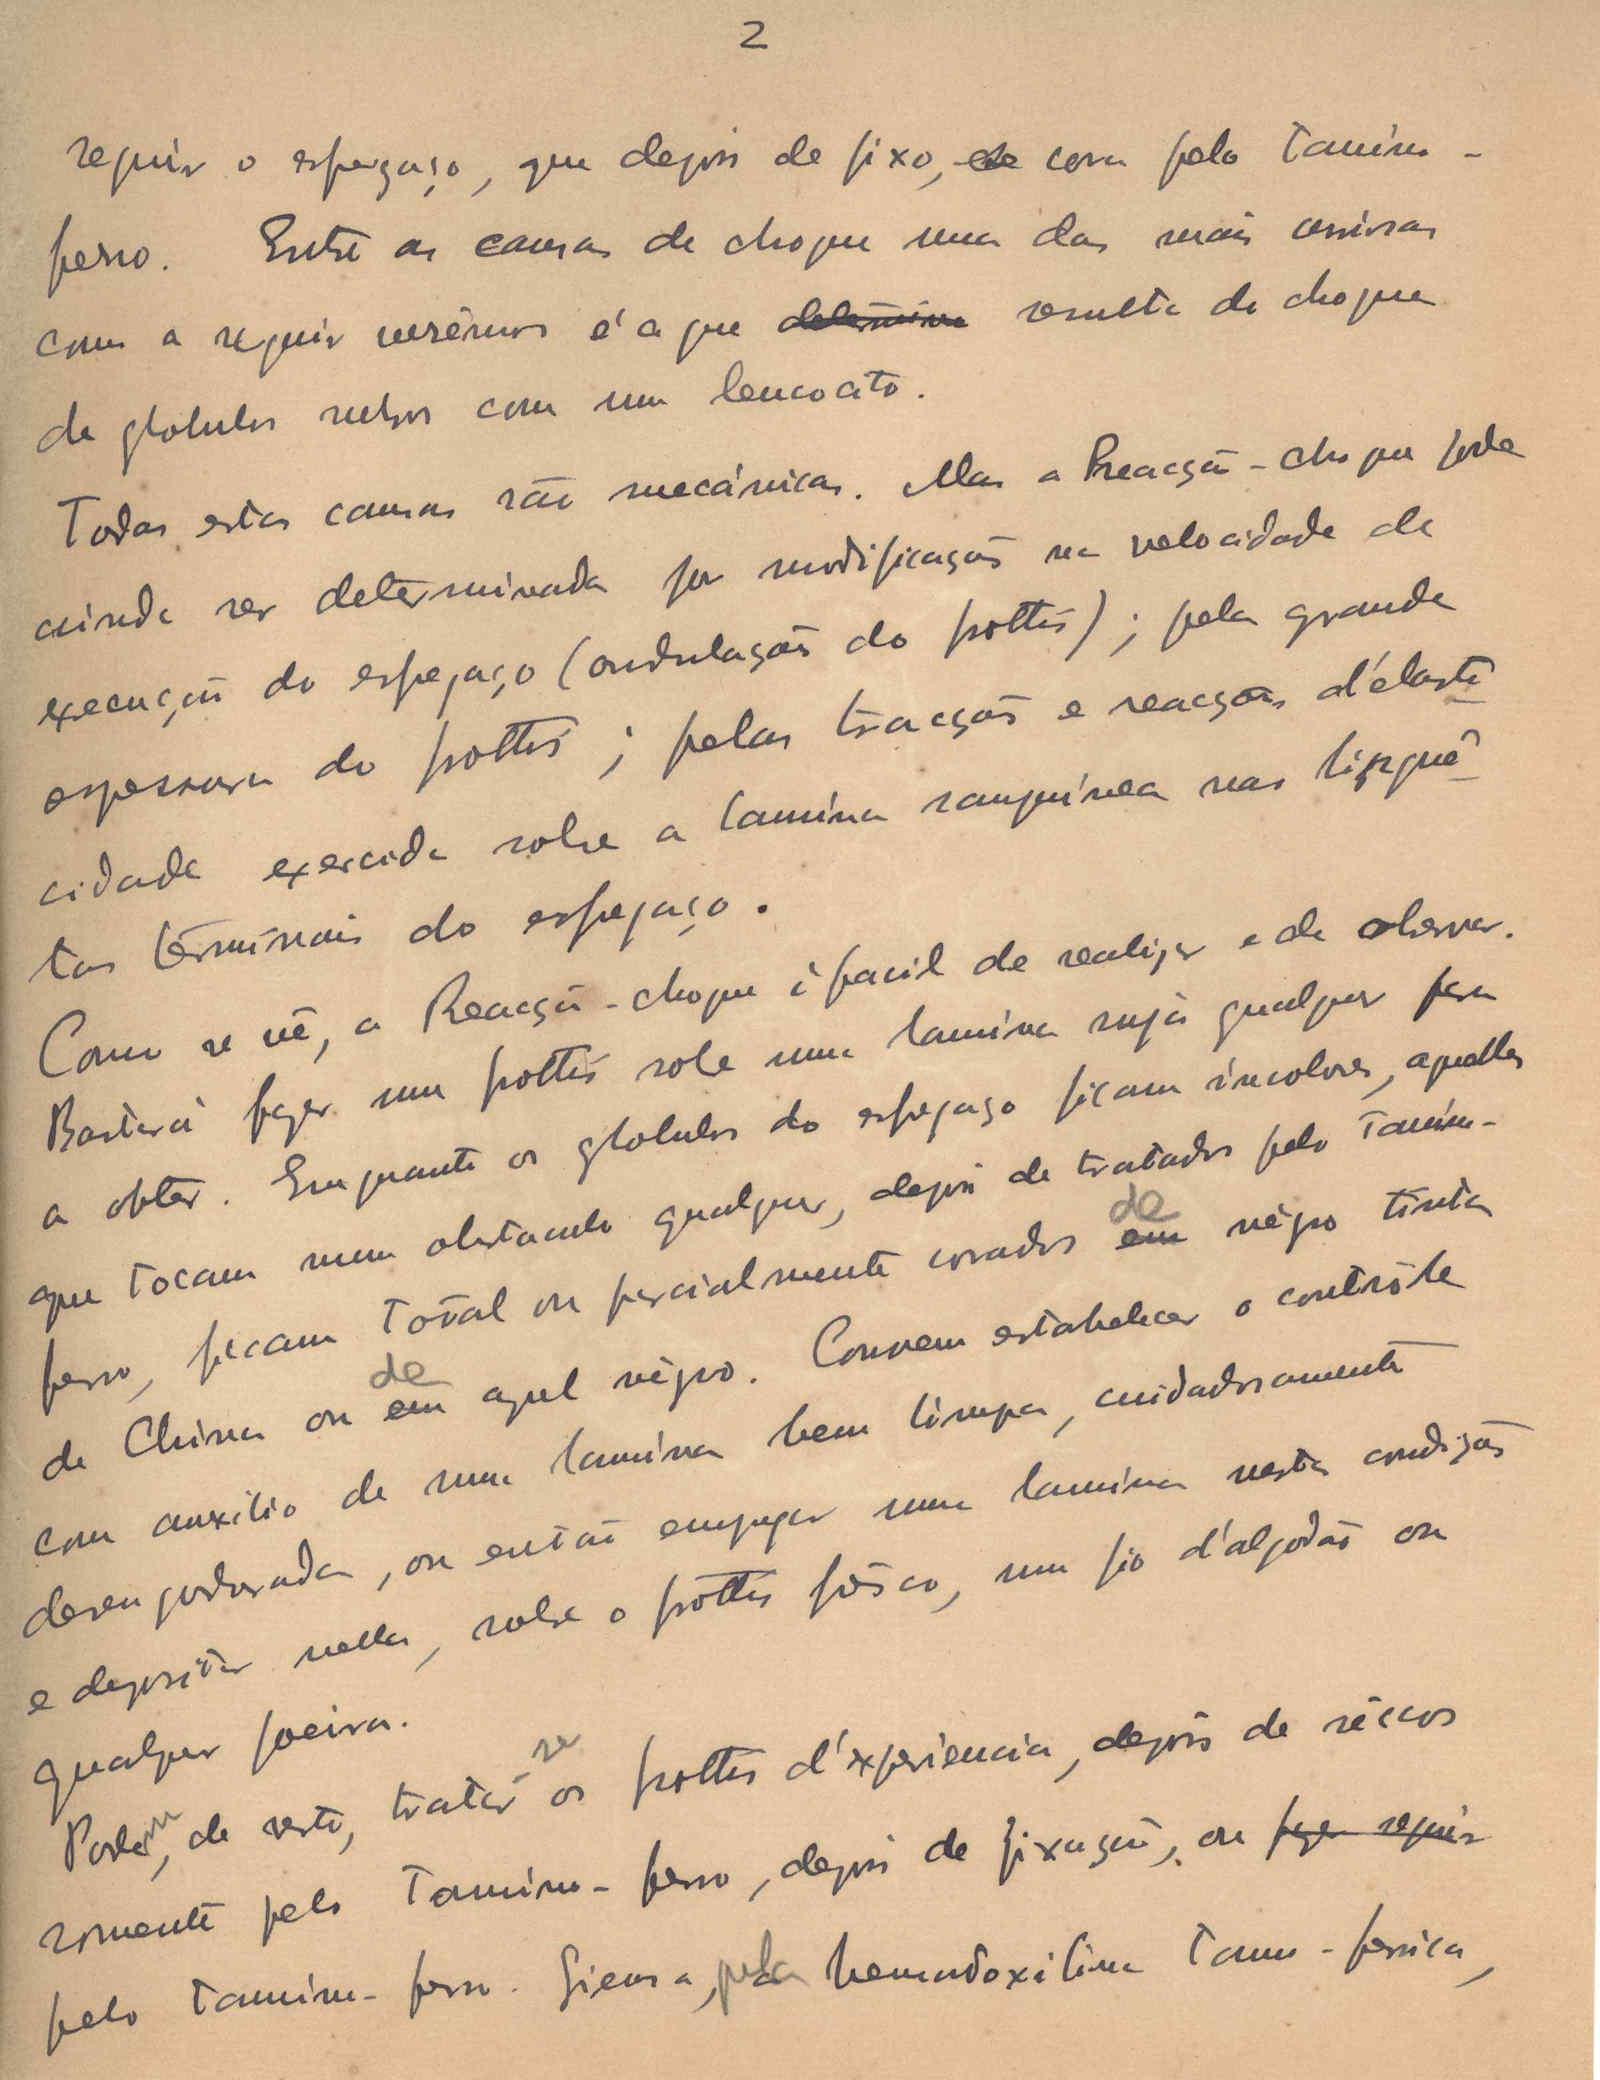 2
seguir o esfregaço, que depois de fixo, se cora pelo Tanino-
ferro. Entre as causas de choque uma das mais curiosas
como a seguir veremos é a que determina resulta do choque
de globulos rubros com um leucocito.
Todas estas causas são mecánicas. Mas a Reacção-choque pode
ainda ser determinada por modificações na velocidade de
execução do esfregaço (ondulações do frottis); pela grande
espessura do frottis; pelas tracções e reacções d'élasti
cidade exercida sobre a lamina sanguínea nas linguê
tas términais do esfregaço.
Como se vê, a Reacção-choque é facil de realizar e de observar.
Bastará fazer um frottis sobre uma lamina suja qualquer para
a obter. Emquanto os globulos do esfregaço ficam incolores, aquelles
que tocam num obstaculo qualquer, depois de tratados pelo Tanino-
ferro, ficam total ou parcialmente corados em de négro tinta
de China ou em de azul négro. Convem estabelecer o contrôle
com auxilio de uma lamina bem limpa, cuidadosamente
desengordurada, ou então empregar uma lamina nestas condições
e depositar nella, sobre o frottis frêsco, um fio d'algodão ou
qualquer poeira.
Podem, de resto, tratar-se os frottis d'experiencia, depois de sêccos
somente pelo Tanino-ferro, depois de fixação, ou fazer seguir
pelo Tanino-ferro. Giemsa, pela hematoxilina Tano-ferrica,